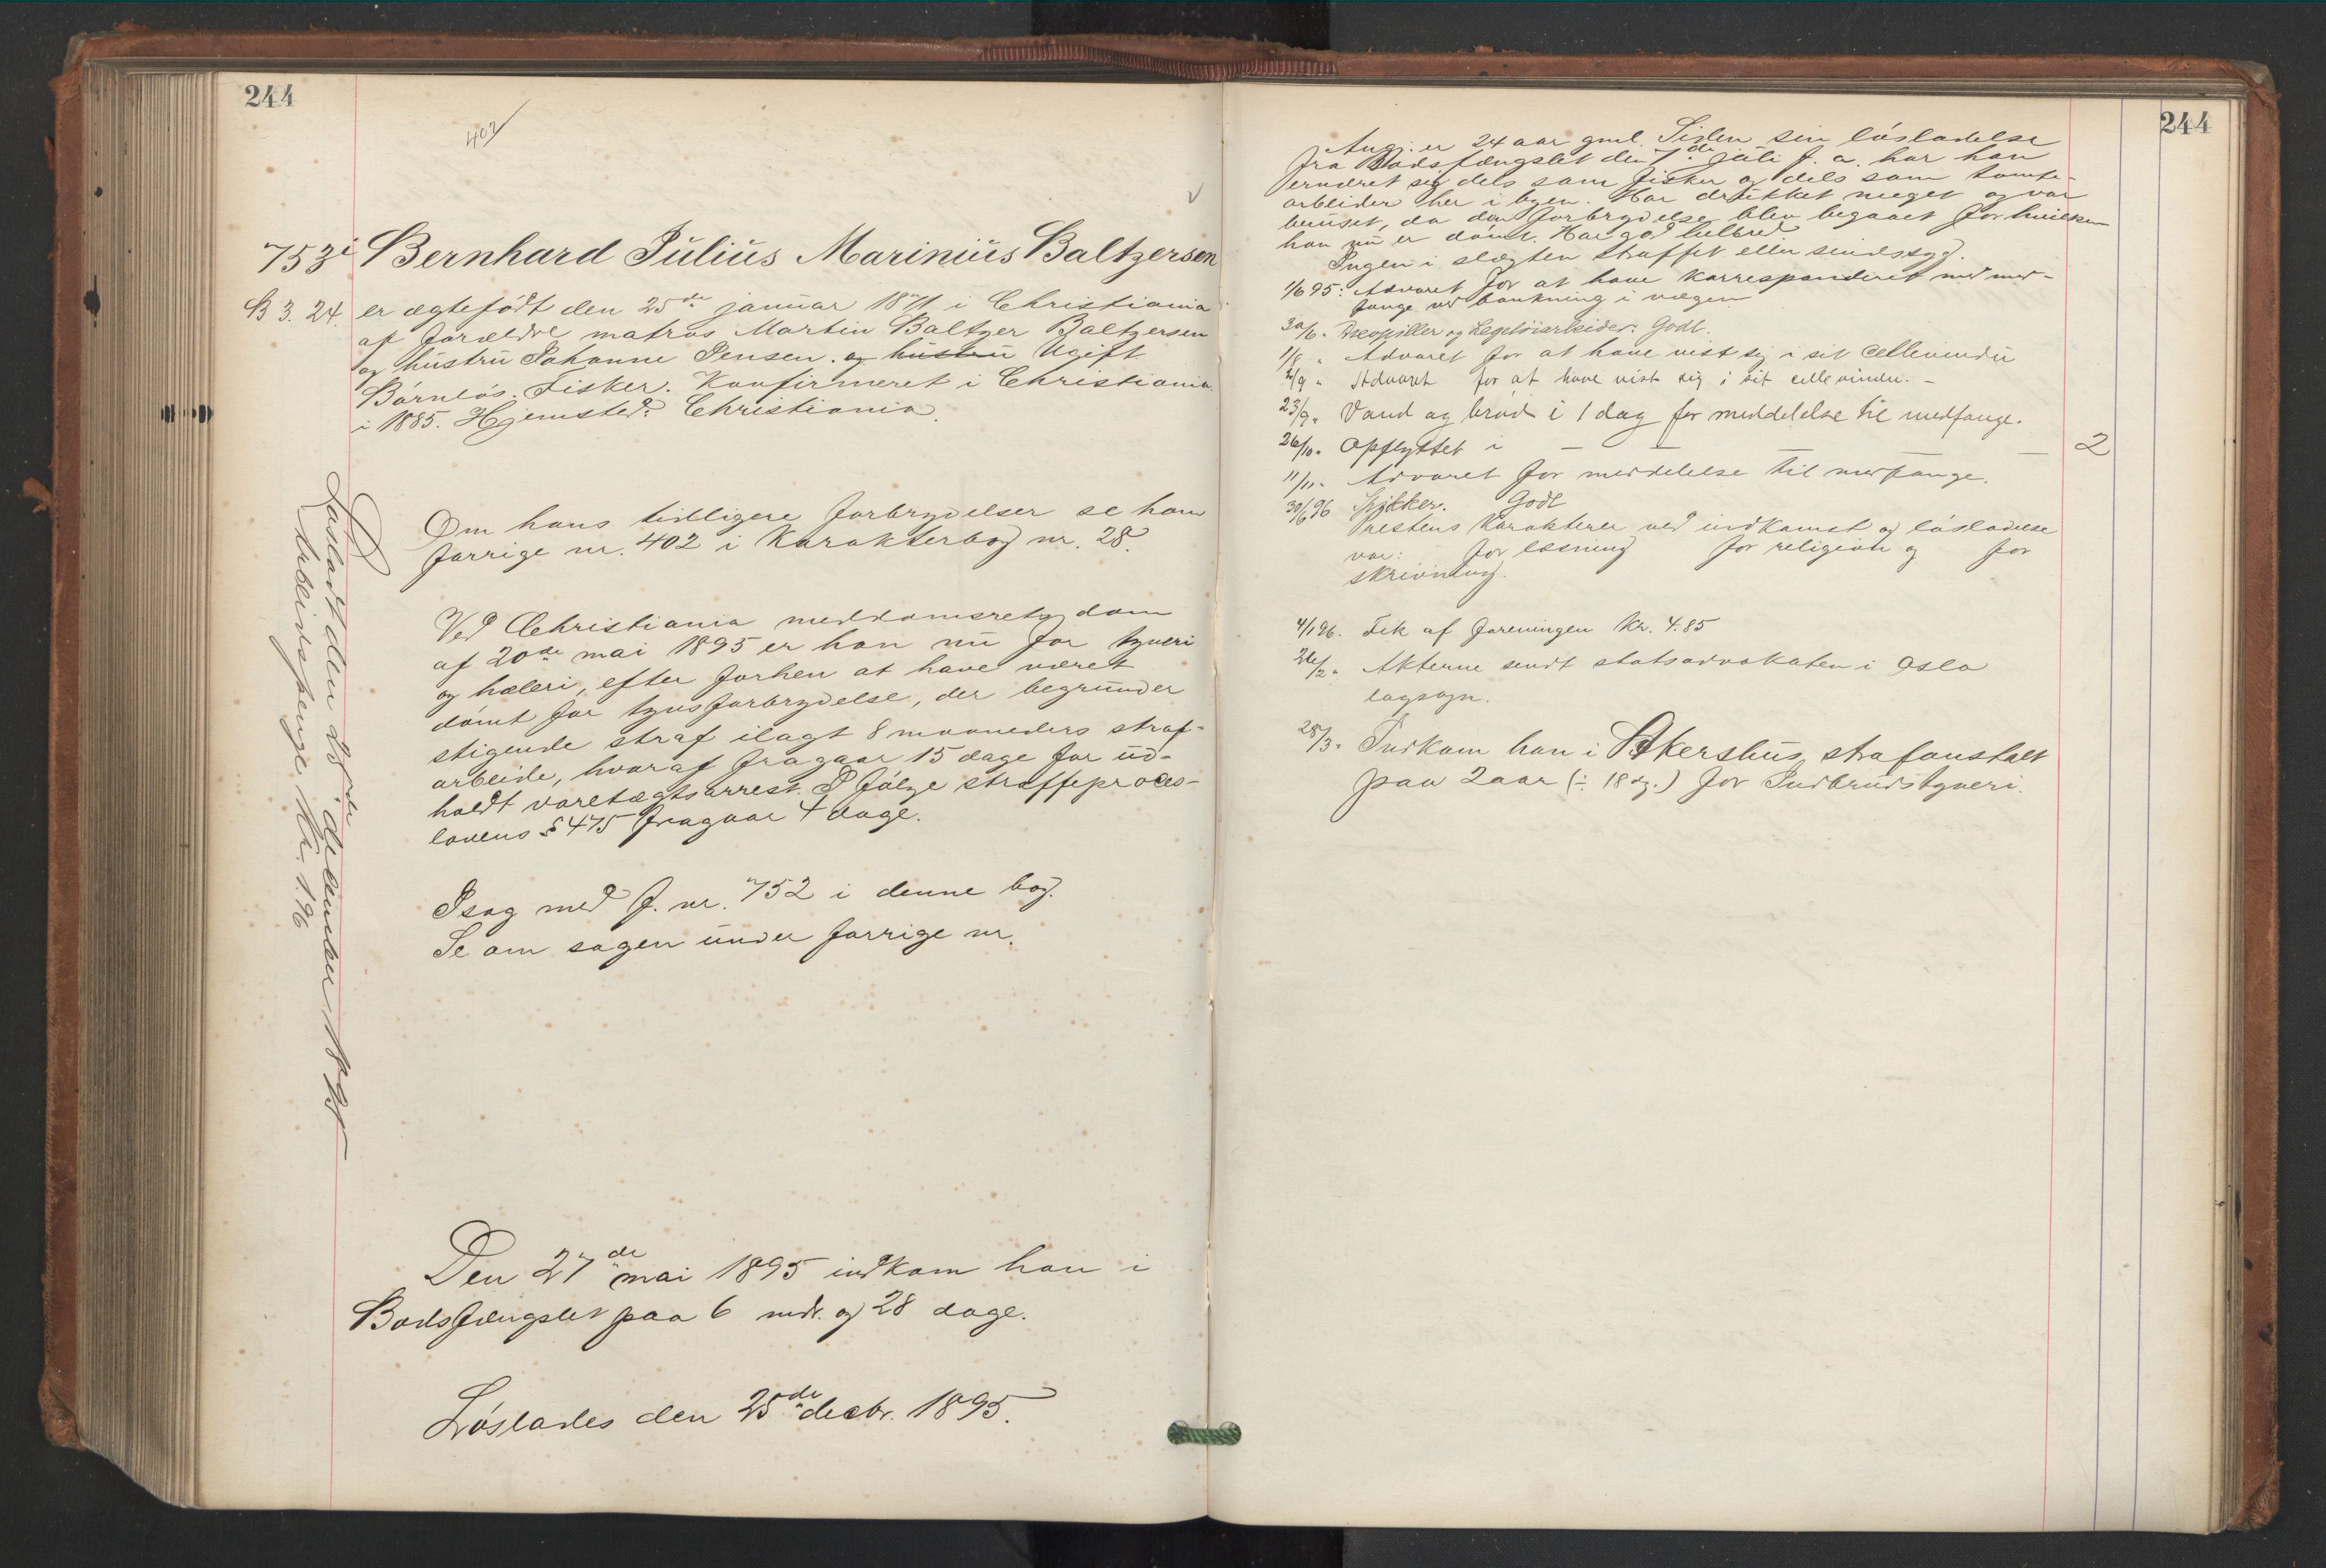 244
402
753i Bernhard Julius Marinius Baltzersen
B 3. 24. er ægtefødt den 25de januar 1871 i Christiania
af forældre matros Martin Baltzer Baltzersen
og hustru Johanne Jensen. og hustru Ugift
Børnløs. Fisker. Konfirmeret i Christiania
i 1885. Hjemsted: Christiania.
Om hans tidligere forbrydelser se hans
forrige nr. 402 i Karakterbog nr. 28.
Ved Christiania meddomsrets dom
af 20de mai 1895 er han nu for tyveri
og hæleri, efter forhen at have været
dømt for tyvsforbrydelse, der begrunder
stigende straf ilagt 8 maaneders straf-
arbeide, hvoraf fragaar 15 dage for ud-
holdt varetægtsarrest. I følge straffeproces-
lovens § 475 fragaar 4 dage.
I sag med f. nr. 752 i denne bog.
Se om sagen under forrige nr.
Den 27de mai 1895 indkom han i
Bodsfængslet paa 6 mdr. og 28 dage.
Løslades den 25de decbr. 1895.
Løsladt den 25de december 1895
Arbeidspenge Kr. 1.96
244
Angj. er 24 aar gml. Siden sin løsladelse
fra Bodsfængslet den 7de juli f. a. har han
ernæret sig dels som fisker og dels som tomte-
arbeider her i byen. Har drukket meget og var
beruset, da den forbrydelse blev begaaet for hvilken
han nu er dømt. Har god helbred
Ingen i slægten straffet eller sindssyg.
1/6 95. Advaret for at have korresponderet med med-
fange ved bankning i vægen
30/6. og Legetøiarbeider. Godt.
1/8 " Advaret for at have vist sig i sit cellevindu
2/9 " Advaret for at have vist sig i sit cellevindu. –
23/9 " Vand og brød i 1 dag for meddelelse til medfange.
26/10 " Opflyttet i – – – – 2
11/11 " Advaret for meddelelse til medfange.
30/6 96 Godt
Prestens Karakterer ved indkomst og løsladelse
var: for læsning for religion og for
skrivning.
4/1 96. Fik af foreningen Kr. 4.85
26/2 " Akterne sendt statsadvokaten i Oslo
lagsogn.
28/3 " Indkom han i Akershus strafanstalt
paa 2 aar (÷ 18 dg.) for Indbrudstyveri.